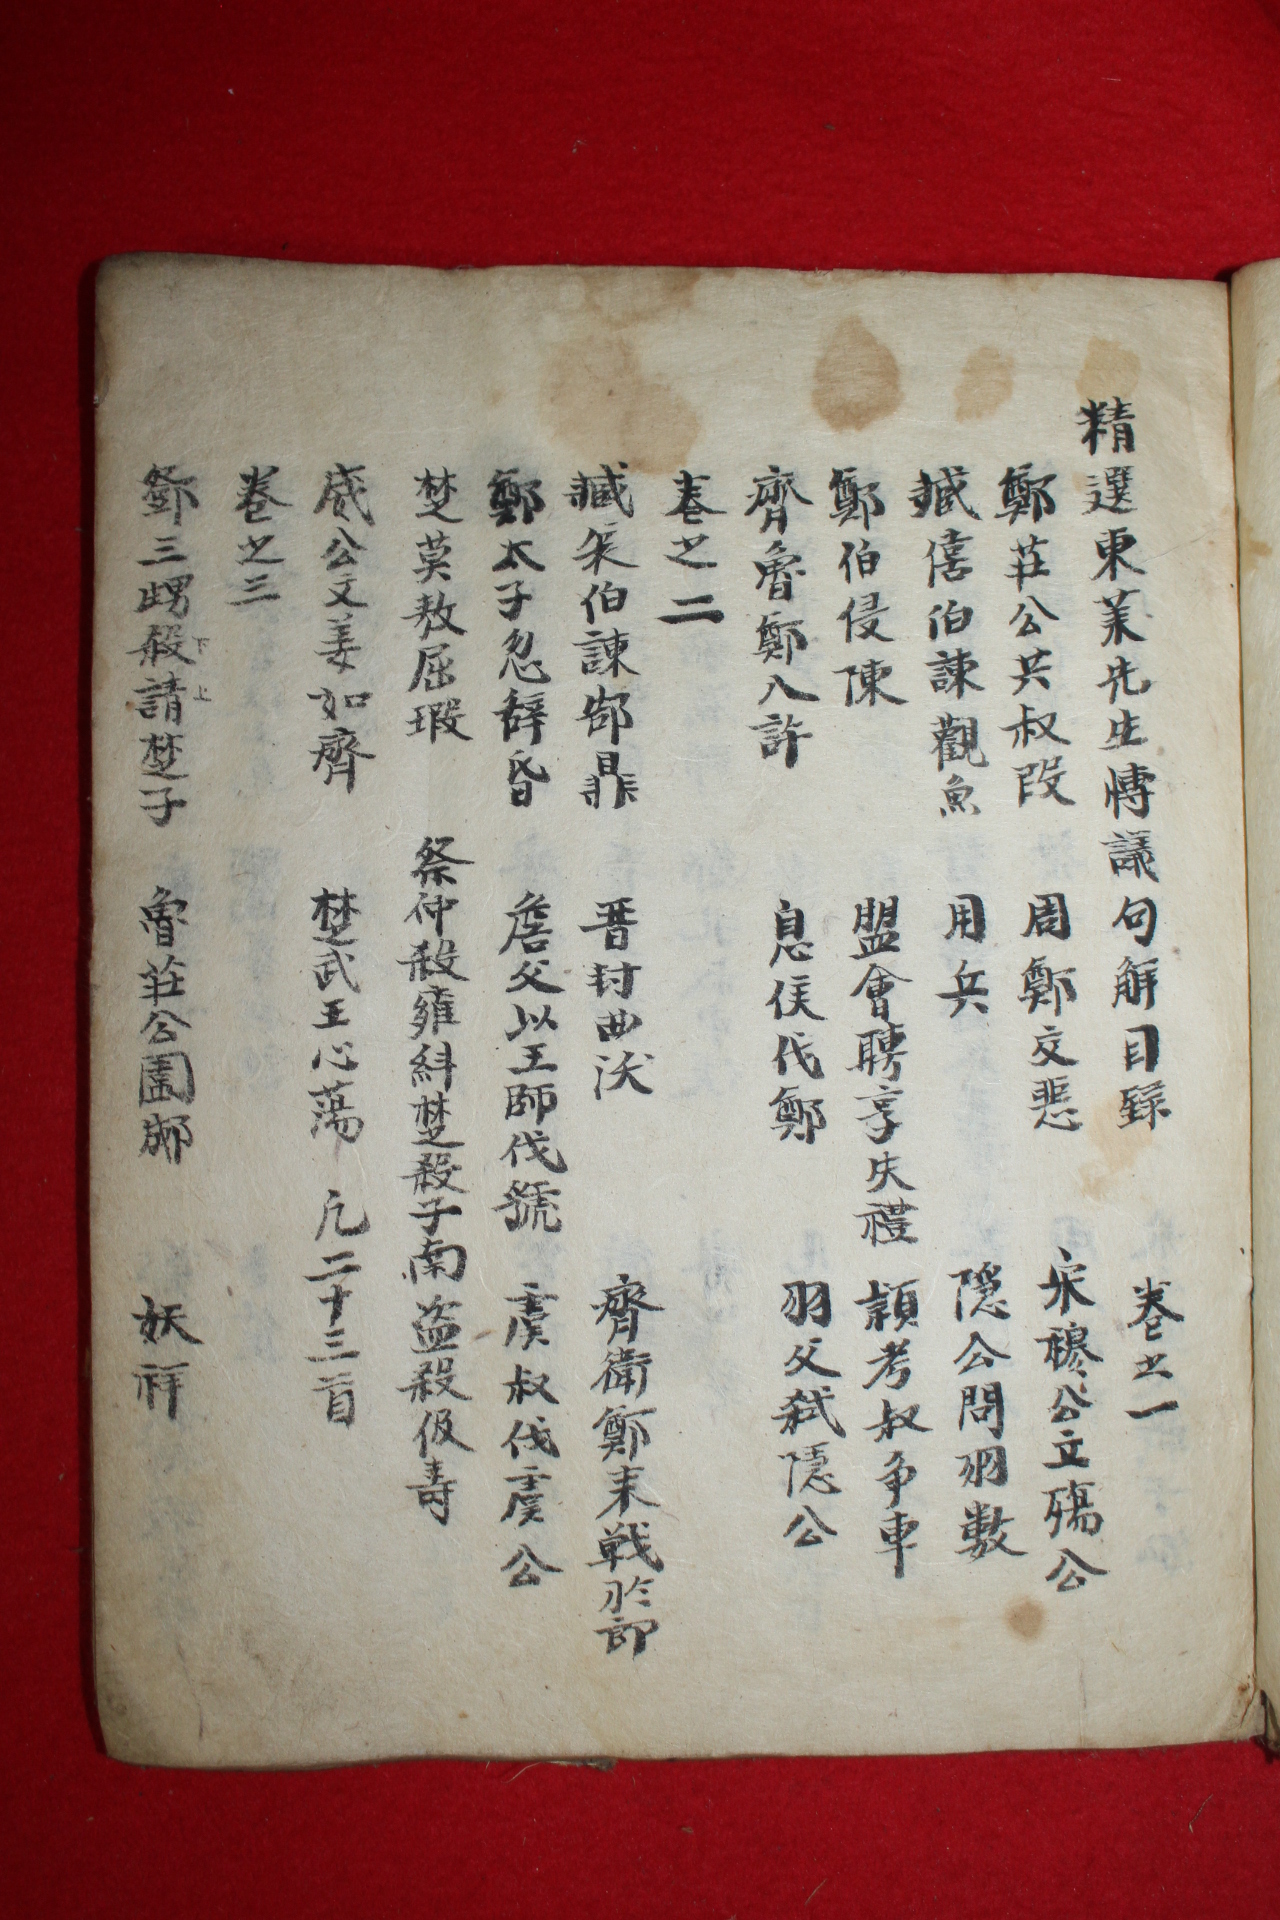 精選東萊先生博議句解目錄 卷之一
鄭莊公共叔段 周鄭交惡 宋穆公立殤公
臧僖伯諫觀魚 用兵 隱公問羽數
鄭伯侵陳 盟會聘享失禮 穎考叔爭車
齊魯鄭入許 息侯伐鄭 羽父弑隱公
卷之二
臧哀伯諫郜鼎 晋封曲沃 齊衛鄭來戰於郎
鄭太子忽辭昏 詹父以王師伐虢 虞叔伐虞公
楚莫敖屈瑕 祭仲殺雍糾楚殺子南盜殺伋壽
威公文姜如齊 楚武王心蕩 凡二十三首
卷之三
鄧三甥殺請楚子 魯莊公圍郕 妖祥
下
上